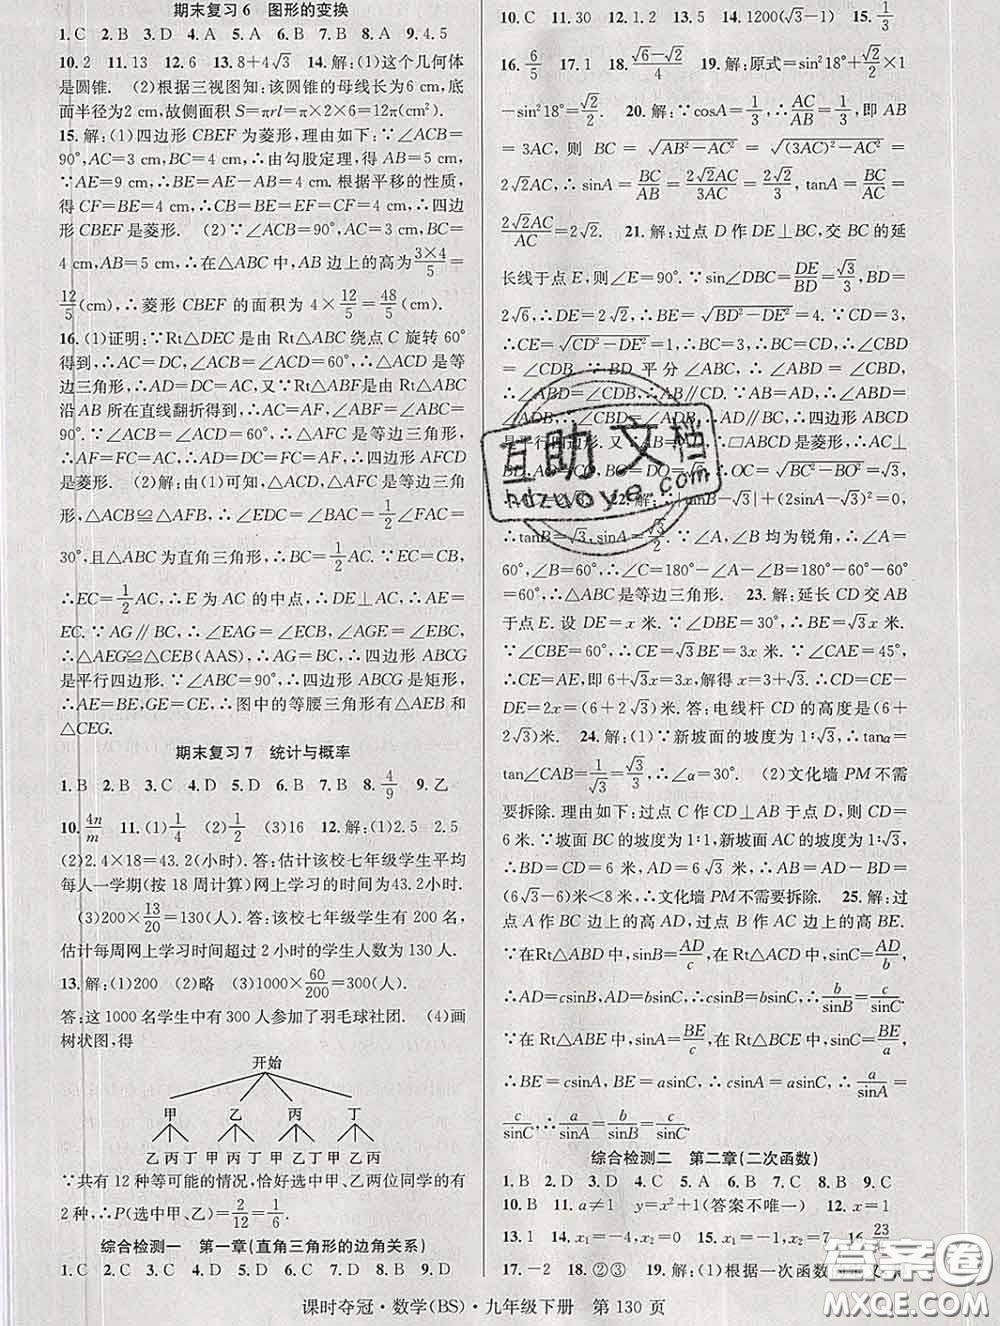 期末复习6 图形的变换
1. C 2. B 3. D 4. A 5. A 6. C 7. B 8. C 9. 4.5
10. 2 11. 13 12. 6 13. 8+4√3 14. 解:(1)这个几何体
是圆锥. (2)根据三视图知:该圆锥的母线长为6 cm,底
面半径为2 cm,故侧面积S=πrl=π×2×6=12π(cm²).
15. 解:(1)四边形CBEF为菱形,理由如下:∵∠ACB=
90°,AC=3 cm,BC=4 cm,∴由勾股定理,得AB=5 cm,
∵AE=9 cm,∴BE=AE-AB=4 cm. 根据平移的性质,
得CF=BE=4 cm,∴CF=BE=EF=BC=4 cm,∴四边
形CBEF是菱形. (2)∵∠ACB=90°,AC=3 cm,BC=
4 cm,AB=5 cm,∴在△ABC中,AB边上的高为3×4/5=
12/5(cm),∴菱形CBEF的面积为4×12/5=48/5(cm²).
16. (1)证明:∵Rt△DEC是由Rt△ABC绕点C旋转60°
得到,∴AC=DC,∠ACB=∠ACD=60°,∴△ACD是等
边三角形,∴AD=DC=AC. 又∵Rt△ABF是由Rt△ABC
沿AB所在直线翻折得到,∴AC=AF,∠ABF=∠ABC=
90°,∠AFC=60°,∴△AFC是等边三角形,
∴AF=FC=AC,∴AD=DC=FC=AF,∴四边形AFCD是
菱形. (2)解:由(1)可知,△ACD,△AFC是等边三角
形,△ACB≌△AFB,∴∠EDC=∠BAC=1/2∠FAC=
30°,且△ABC为直角三角形,∴BC=1/2AC. ∵EC=CB,
∴EC=1/2AC,∴E为AC的中点,∴DE⊥AC,∴AE=
EC. ∵AG∥BC,∴∠EAG=∠ECB,∠AGE=∠EBC,
∴△AEG≌△CEB(AAS),∴AG=BC,∴四边形ABCG
是平行四边形. ∵∠ABC=90°,∴四边形ABCG是矩形,
∴AE=BE,GE=CE,∴图中的等腰三角形有△AEB和
△CEG.
期末复习7 统计与概率
1. B 2. B 3. C 4. D 5. D 6. B 7. B 8. 4/9 9. 乙
10. 4n/m 11. (1)1/4 (2)1/2 (3)16 12. 解:(1)2.5 2.5
(2)2.4×18=43.2(小时). 答:估计该校七年级学生平均
每人一学期(按18周计算)网上学习的时间为43.2小时.
(3)200×13/20=130(人). 答:该校七年级学生有200名,
估计每周网上学习时间超过2小时的学生人数为130人.
13. 解:(1)200 (2)略 (3)1000×60/200=300(人).
答:这1000名学生中有300人参加了羽毛球社团. (4)画
树状图,得
开始
甲 乙 丙 丁
乙丙丁 甲丙丁 甲乙丁 甲乙丙
∵共有12种等可能的情况,恰好选中甲、乙两位同学的有
2种,∴P(选中甲、乙)=2/12=1/6.
综合检测一 第一章(直角三角形的边角关系)
1. C 2. C 3. C 4. A 5. A 6. C 7. C 8. D 9. D
10. C 11. C 12. C 13. 4 14. 1200(√3-1) 15. 1/√3
16. 6/5 17. 1 18. (√6-√2)/4 19. 解:原式=sin²18°+√2/2×1
-sin²18°=√2/2. 20. 解:∵cosA=1/3,∴AC/AB=1/3,即AB
=3AC,则BC=√(AB²-AC²)=√((3AC)²-AC²)=
2√2AC,∴sinA=BC/AB=2√2AC/3AC=2√2/3,tanA=BC/AC=
2√2AC/AC=2√2. 21. 解:过点D作DE⊥BC,交BC的延
长线于点E,则∠E=90°. ∵sin∠DBC=DE/BD=√3/3,BD=
2√6,∴DE=2√2,∴BE=√(BD²-DE²)=4. ∵CD=3,
∴CE=√(CD²-DE²)=1,∴BC=CD=3,∴∠CBD
=∠CDB. ∵BD平分∠ABC,∴∠ABD=∠CBD,
∴∠ABD=∠CDB,∴AB∥CD. ∵AD∥BC,∴四边形ABCD
是平行四边形. 又∵BC=CD,∴□ABCD是菱形,∴AC⊥
BD,BO=DO=√6,∴OC=√(BC²-BO²)=√3,
22. 解:∵|tanB-√3|+(2sinA-√3)²=0,
∴tanB=√3,sinA=√3/2. ∵∠A,∠B均为锐角,∴∠A=
60°,∠B=60°,∴∠C=180°-∠A-∠B=180°-60°-60°
=60°,∴△ABC是等边三角形. 23. 解:延长CD交AB
于点E. 设DE=x米. ∵∠DBE=30°,∴BE=√3x米.
∵∠CBE=60°,∴CE=√3BE=3x米. ∵∠CAE=45°,
∴AE=CE,即6+√3x=3x,解得x=3+√3. ∴CD=2x=
(6+2√3)米. 答:电线杆CD的高度是(6+
2√3)米. 24. 解:(1)∵新坡面的坡度为1:√3,∴tanα=
tan∠CAB=1/√3=√3/3,∴∠α=30°. (2)文化墙PM不需
要拆除. 理由如下:过点C作CD⊥AB于点D,则CD=
6米. ∵坡面BC的坡度为1:1,新坡面AC的坡度为1:√3,
∴BD=CD=6米,AD=6√3米,∴AB=AD-BD=
(6√3-6)米<8米,∴文化墙PM不需要拆除. 25. 解:过
点A作BC边上的高AD,过点B作AC边上的高BE.
∵在Rt△ABD中,sinB=AD/c,在Rt△ACD中,sinC=AD/b,
∴AD=csinB=bsinC,∴csinB=bsinC,∴b/sinB=c/sinC.
∵在Rt△ABE中,sinA=BE/c,在Rt△BCE中,sinC=BE/a,
∴BE=csinA=asinC,∴csinA=asinC,∴a/sinA=
c/sinC,∴a/sinA=b/sinB=c/sinC.
综合检测二 第二章(二次函数)
1. B 2. D 3. D 4. C 5. C 6. D 7. B 8. B 9. C
10. B 11. a≠1 y=x²+1(答案不唯一) 12. x=1
13. 1 14. x₁=-4,x₂=0 15. x₁=0,x₂=7 16. 23
17. -2 18. ②③ 19. 解:(1)根据一次函数
课时夺冠·数学(BS)·九年级下册 第130页
互助文档
hdzuoye.com
答案圈
MXQE.COM